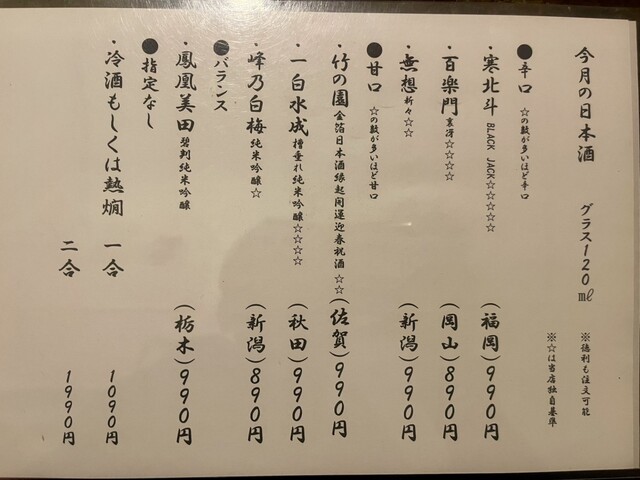 今月の日本酒 グラス120㎖ ※徳利も注文可能
※☆は当店独自基準
●辛口 ☆の数が多いほど辛口
・寒北斗 BLACK JACK☆☆☆☆☆ (福岡)990円
・百楽門 裏冴☆☆☆☆ (岡山)890円
・無想 折々☆☆ (新潟)990円
●甘口 ☆の数が多いほど甘口
・竹の園 金箔日本酒縁起開運迎春祝酒☆☆ (佐賀)990円
・一白水成 槽垂れ純米吟醸☆☆☆☆ (秋田)990円
・峰乃白梅 純米吟醸☆ (新潟)890円
●バランス
・鳳凰美田 碧判純米吟醸 (栃木)990円
●指定なし
・冷酒もしくは熱燗 一合 1090円
二合 1990円